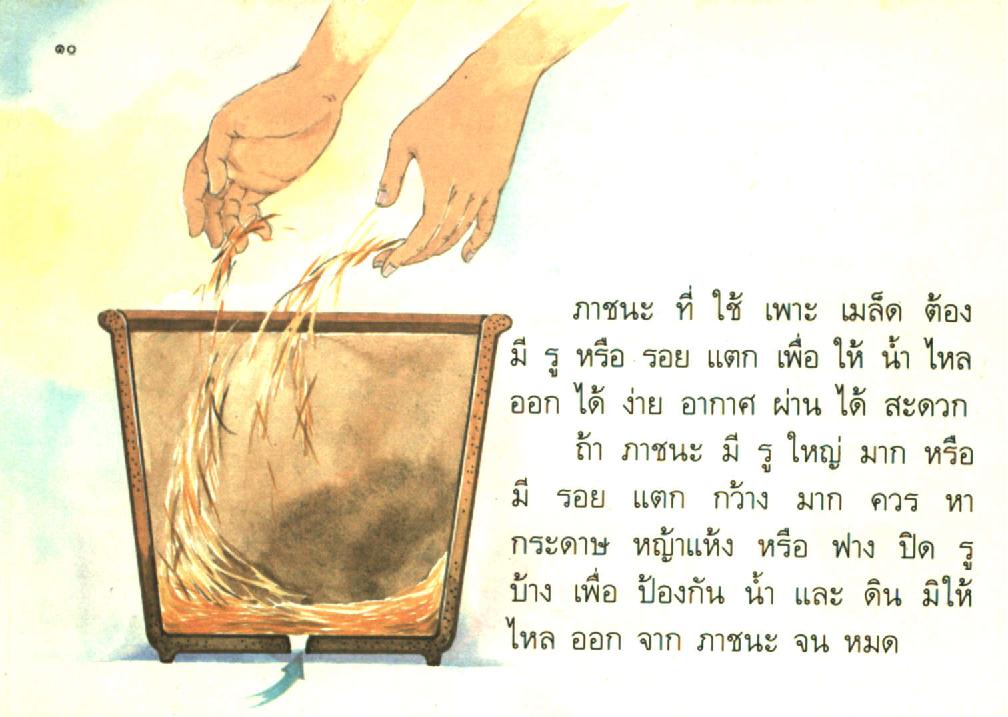 ๑๐
ภาชนะ ที่ ใช้ เพาะ เมล็ด ต้อง
มี รู หรือ รอย แตก เพื่อ ให้ น้ำ ไหล
ออก ได้ ง่าย อากาศ ผ่าน ได้ สะดวก
ถ้า ภาชนะ มี รู ใหญ่ มาก หรือ
มี รอย แตก กว้าง มาก ควร หา
กระดาษ หญ้าแห้ง หรือ ฟาง ปิด รู
บ้าง เพื่อ ป้องกัน น้ำ และ ดิน มิให้
ไหล ออก จาก ภาชนะ จน หมด